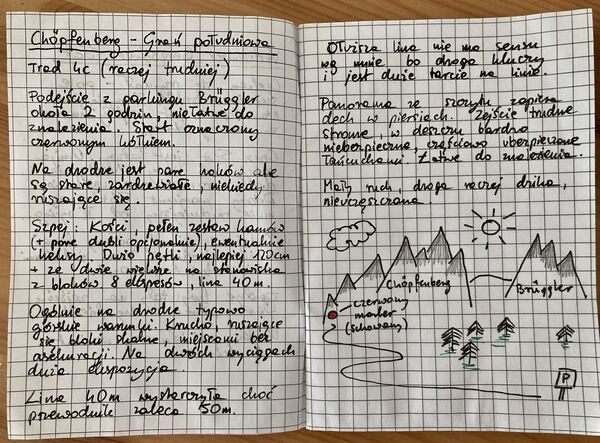 Chöpfenberg - Grań południowa
Trad 4c (raczej trudniej)
Podejście z parkingu Brüggler
około 2 godzin, niełatwe do
znalezienia. Start oznaczony
czerwonym kółkiem.
Na drodze jest parę haków ale
są stare, zardzewiałe, niekiedy
ruszające się.
Szpej: Kości, pełen zestaw kamów
(+ parę dubli opcjonalnie), ewentualnie
heksy. Dużo pętli, najlepiej 120cm
+ ze dwie większe na stanowiska
z bloków. 8 ekspresów, lina 40m.
Ogólnie na drodze typowo
górskie warunki. Krucho, ruszające
się bloki skalne, miejscami bez
asekuracji. Na dwóch wyciągach
duża ekspozycja.
Lina 40m wystarczyła choć
przewodnik zaleca 50m.
Dłuższa lina nie ma sensu
wg mnie bo droga kluczy
i jest duże tarcie na linie.
Panorama ze szczytu zapiera
dech w piersiach. Zejście trudne
strome, w deszczu bardzo
niebezpieczne, częściowo ubezpieczone
łańcuchami. Łatwe do znalezienia.
Mały ruch, droga raczej dzika,
nieuczęszczana.
Chöpfenberg
Brüggler
czerwony
marker
(schowany)
P